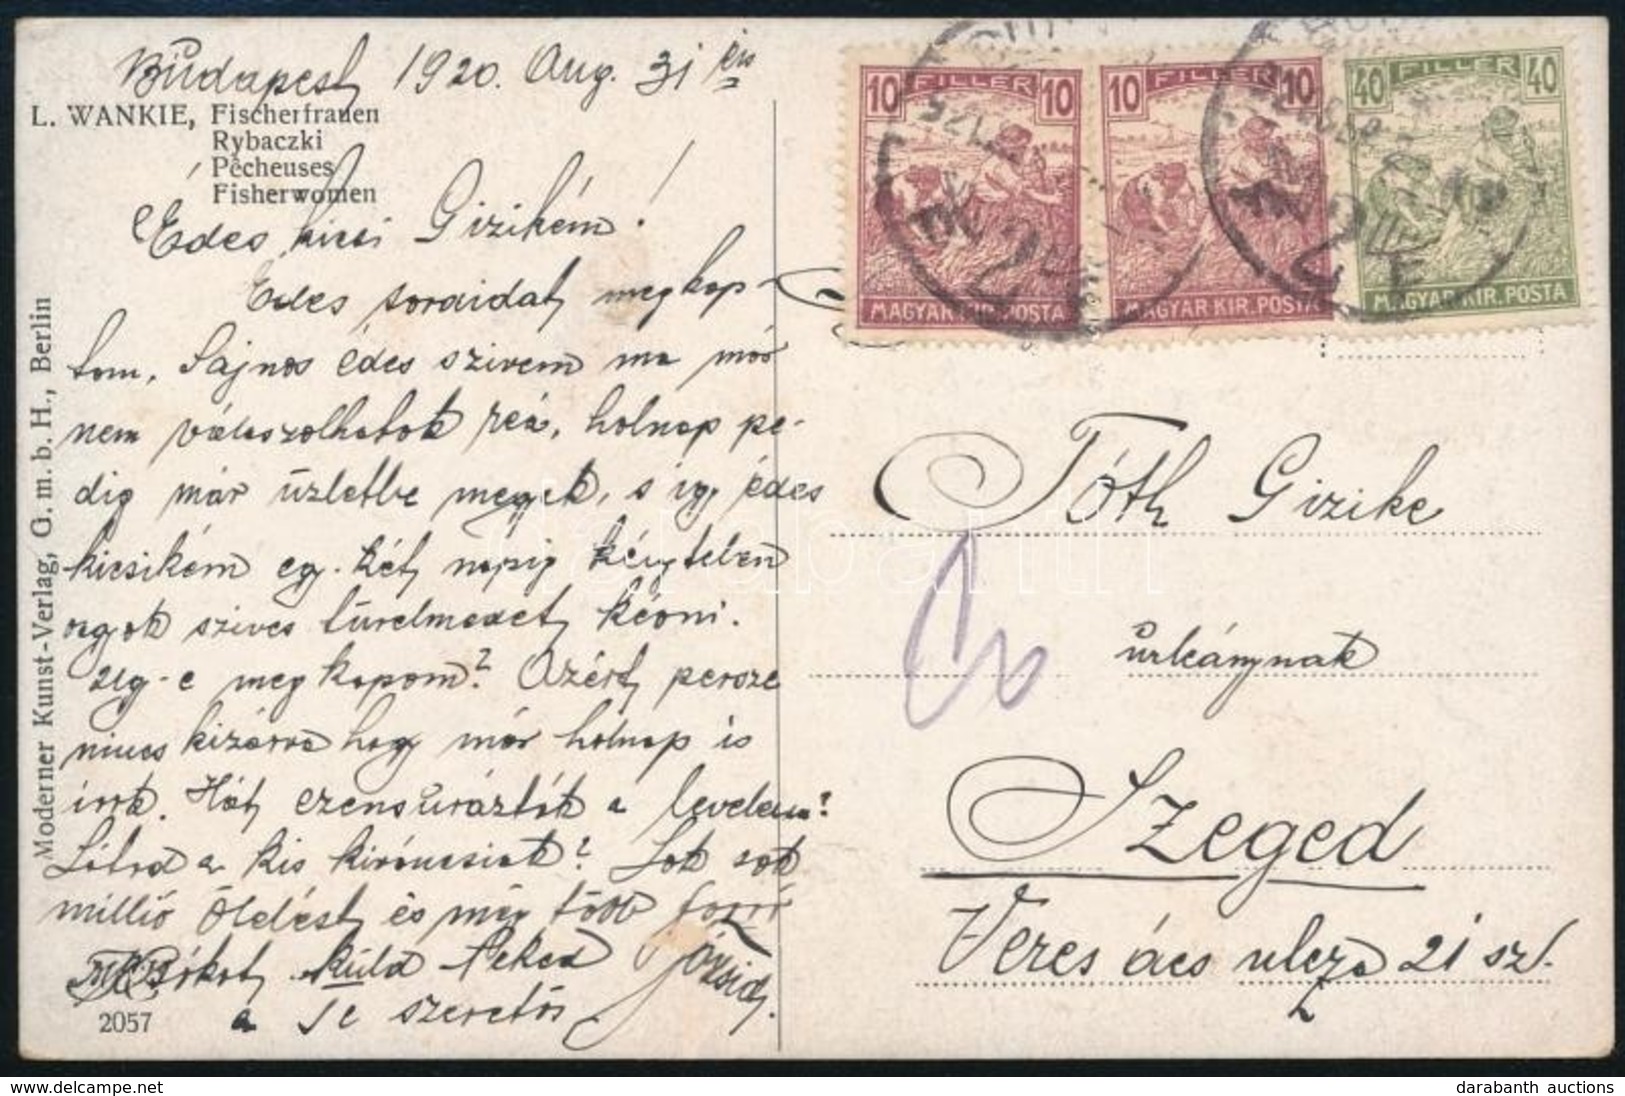 Budapest, 1920. Aug. 31 én
L. WANKIE, Fischerfrauen
Rybaczki
Pêcheuses
Fisherwomen
Édes kicsi Gizikém!
Édes soraidat megkap-
tam. Sajnos édes szivem ma már
nem válaszolhatok reá, holnap pe-
dig már üzletbe megyek, s igy édes
kicsikém egy-két napig kénytelen
vagyok szives türelmedet kérni.
Ugy-e megkapom? Azért persze
nincs kizárva hogy már holnap is
irok. Hát czenzurázták a levelem?
Láttad a kis kiváncsiak? Sok sok
millió ölelést és még több forró
csókot küld Neked
a Te szerető Józsid.
2057
Moderner Kunst-Verlag, G. m. b. H., Berlin
10 FILLER 10
MAGYAR KIR. POSTA
10 FILLER 10
MAGYAR KIR. POSTA
40 FILLER 40
MAGYAR KIR. POSTA
Tóth Gizike
urleánynak
Szeged
Veres ács utcza 21 sz.
darabanth
darabanth auctions
www.delcampe.net